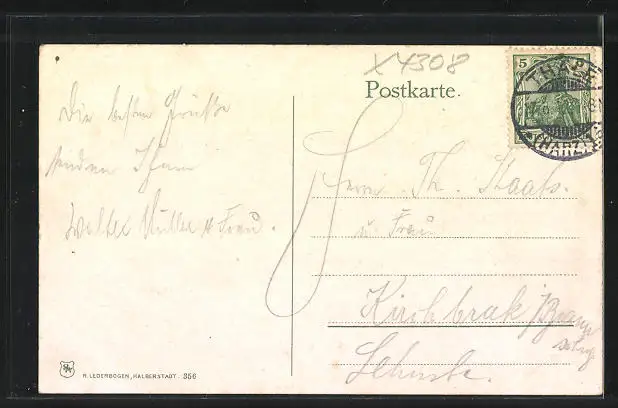 X4308
Postkarte.
5
THALE
(HARZ)
Die besten Grüße
senden Ihnen
Walter Müller u Frau.
Herrn Th. Staats.
u Frau
Kirchbrak
R. LEDERBOGEN, HALBERSTADT. 356